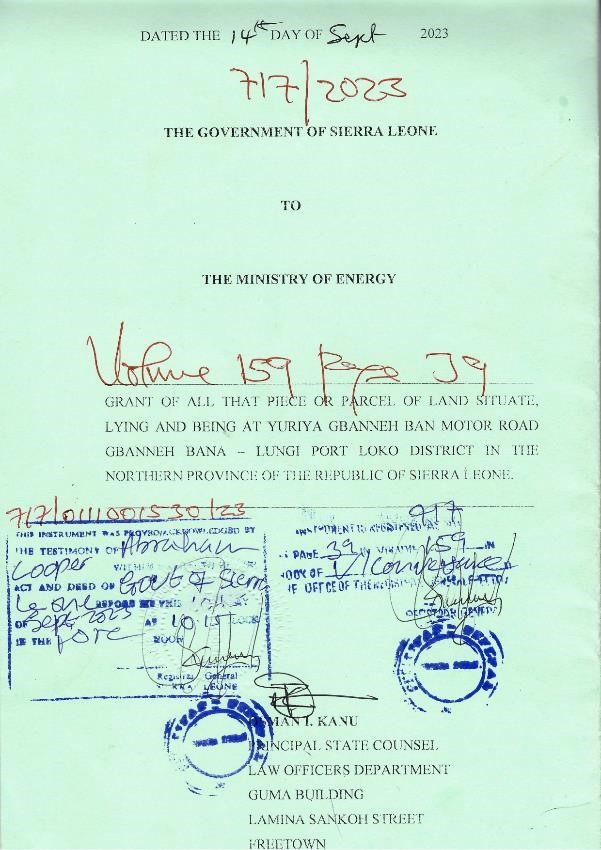 DATED THE 14th DAY OF Sept 2023
717/2023
THE GOVERNMENT OF SIERRA LEONE
TO
THE MINISTRY OF ENERGY
Volume 159 page 39
GRANT OF ALL THAT PIECE OR PARCEL OF LAND SITUATE,
LYING AND BEING AT YURIYA GBANNEH BAN MOTOR ROAD
GBANNEH BANA – LUNGI PORT LOKO DISTRICT IN THE
NORTHERN PROVINCE OF THE REPUBLIC OF SIERRA LEONE.
717/0111001530/23
THIS INSTRUMENT WAS PROVED/ACKNOWLEDGED BY
THE TESTIMONY OF Abraham
Cooper
ACT AND DEED OF Govt of Sierra
Leone BEFORE ME THIS DAY
OF Sept 2023 AT 10.15 CLOCK
IN THE fore NOON
Registrar General
SIERRA LEONE
717
INSTRUMENT IS REGISTERED AS NO
PAGE 39 IN VOLUME 159 IN
BOOK OF Conveyance
OFFICE OF THE REGISTRAR GENERAL
REGISTRAR GENERAL
OSMAN I. KANU
PRINCIPAL STATE COUNSEL
LAW OFFICERS DEPARTMENT
GUMA BUILDING
LAMINA SANKOH STREET
FREETOWN